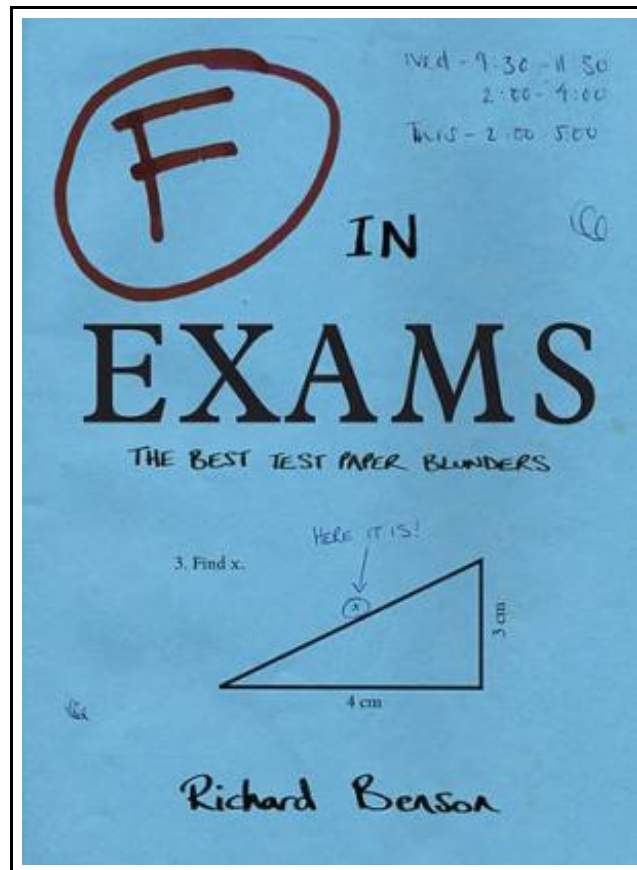 F
Wed - 9:30 - 11 30
2:00 - 4:00
Thurs - 2:00 5:00
IN
EXAMS
THE BEST TEST PAPER BLUNDERS
HERE IT IS!
3. Find x.
x
3 cm
4 cm
Richard Benson